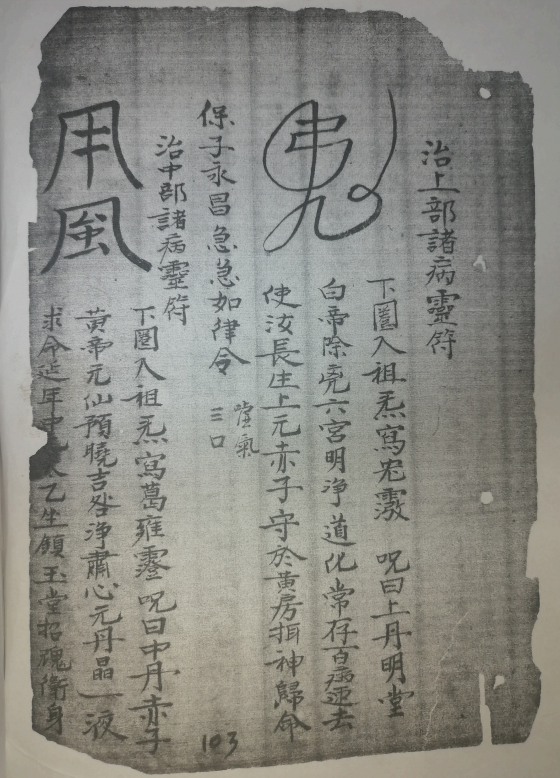 治上部諸病靈符
下圈入祖炁寫 呪曰上丹明堂
白帝除 六宮明淨道化常存百病速去
使汝長生上元赤子守於黃房 神歸命
保子永昌急急如律令 氣三口
治中部諸病靈符
下圈入祖炁寫葛雍 呪曰中丹赤子
黃帝元仙預曉吉咎淨肅心元丹晶一液
求令延年中 太乙坐鎮玉堂招魂衛身
103